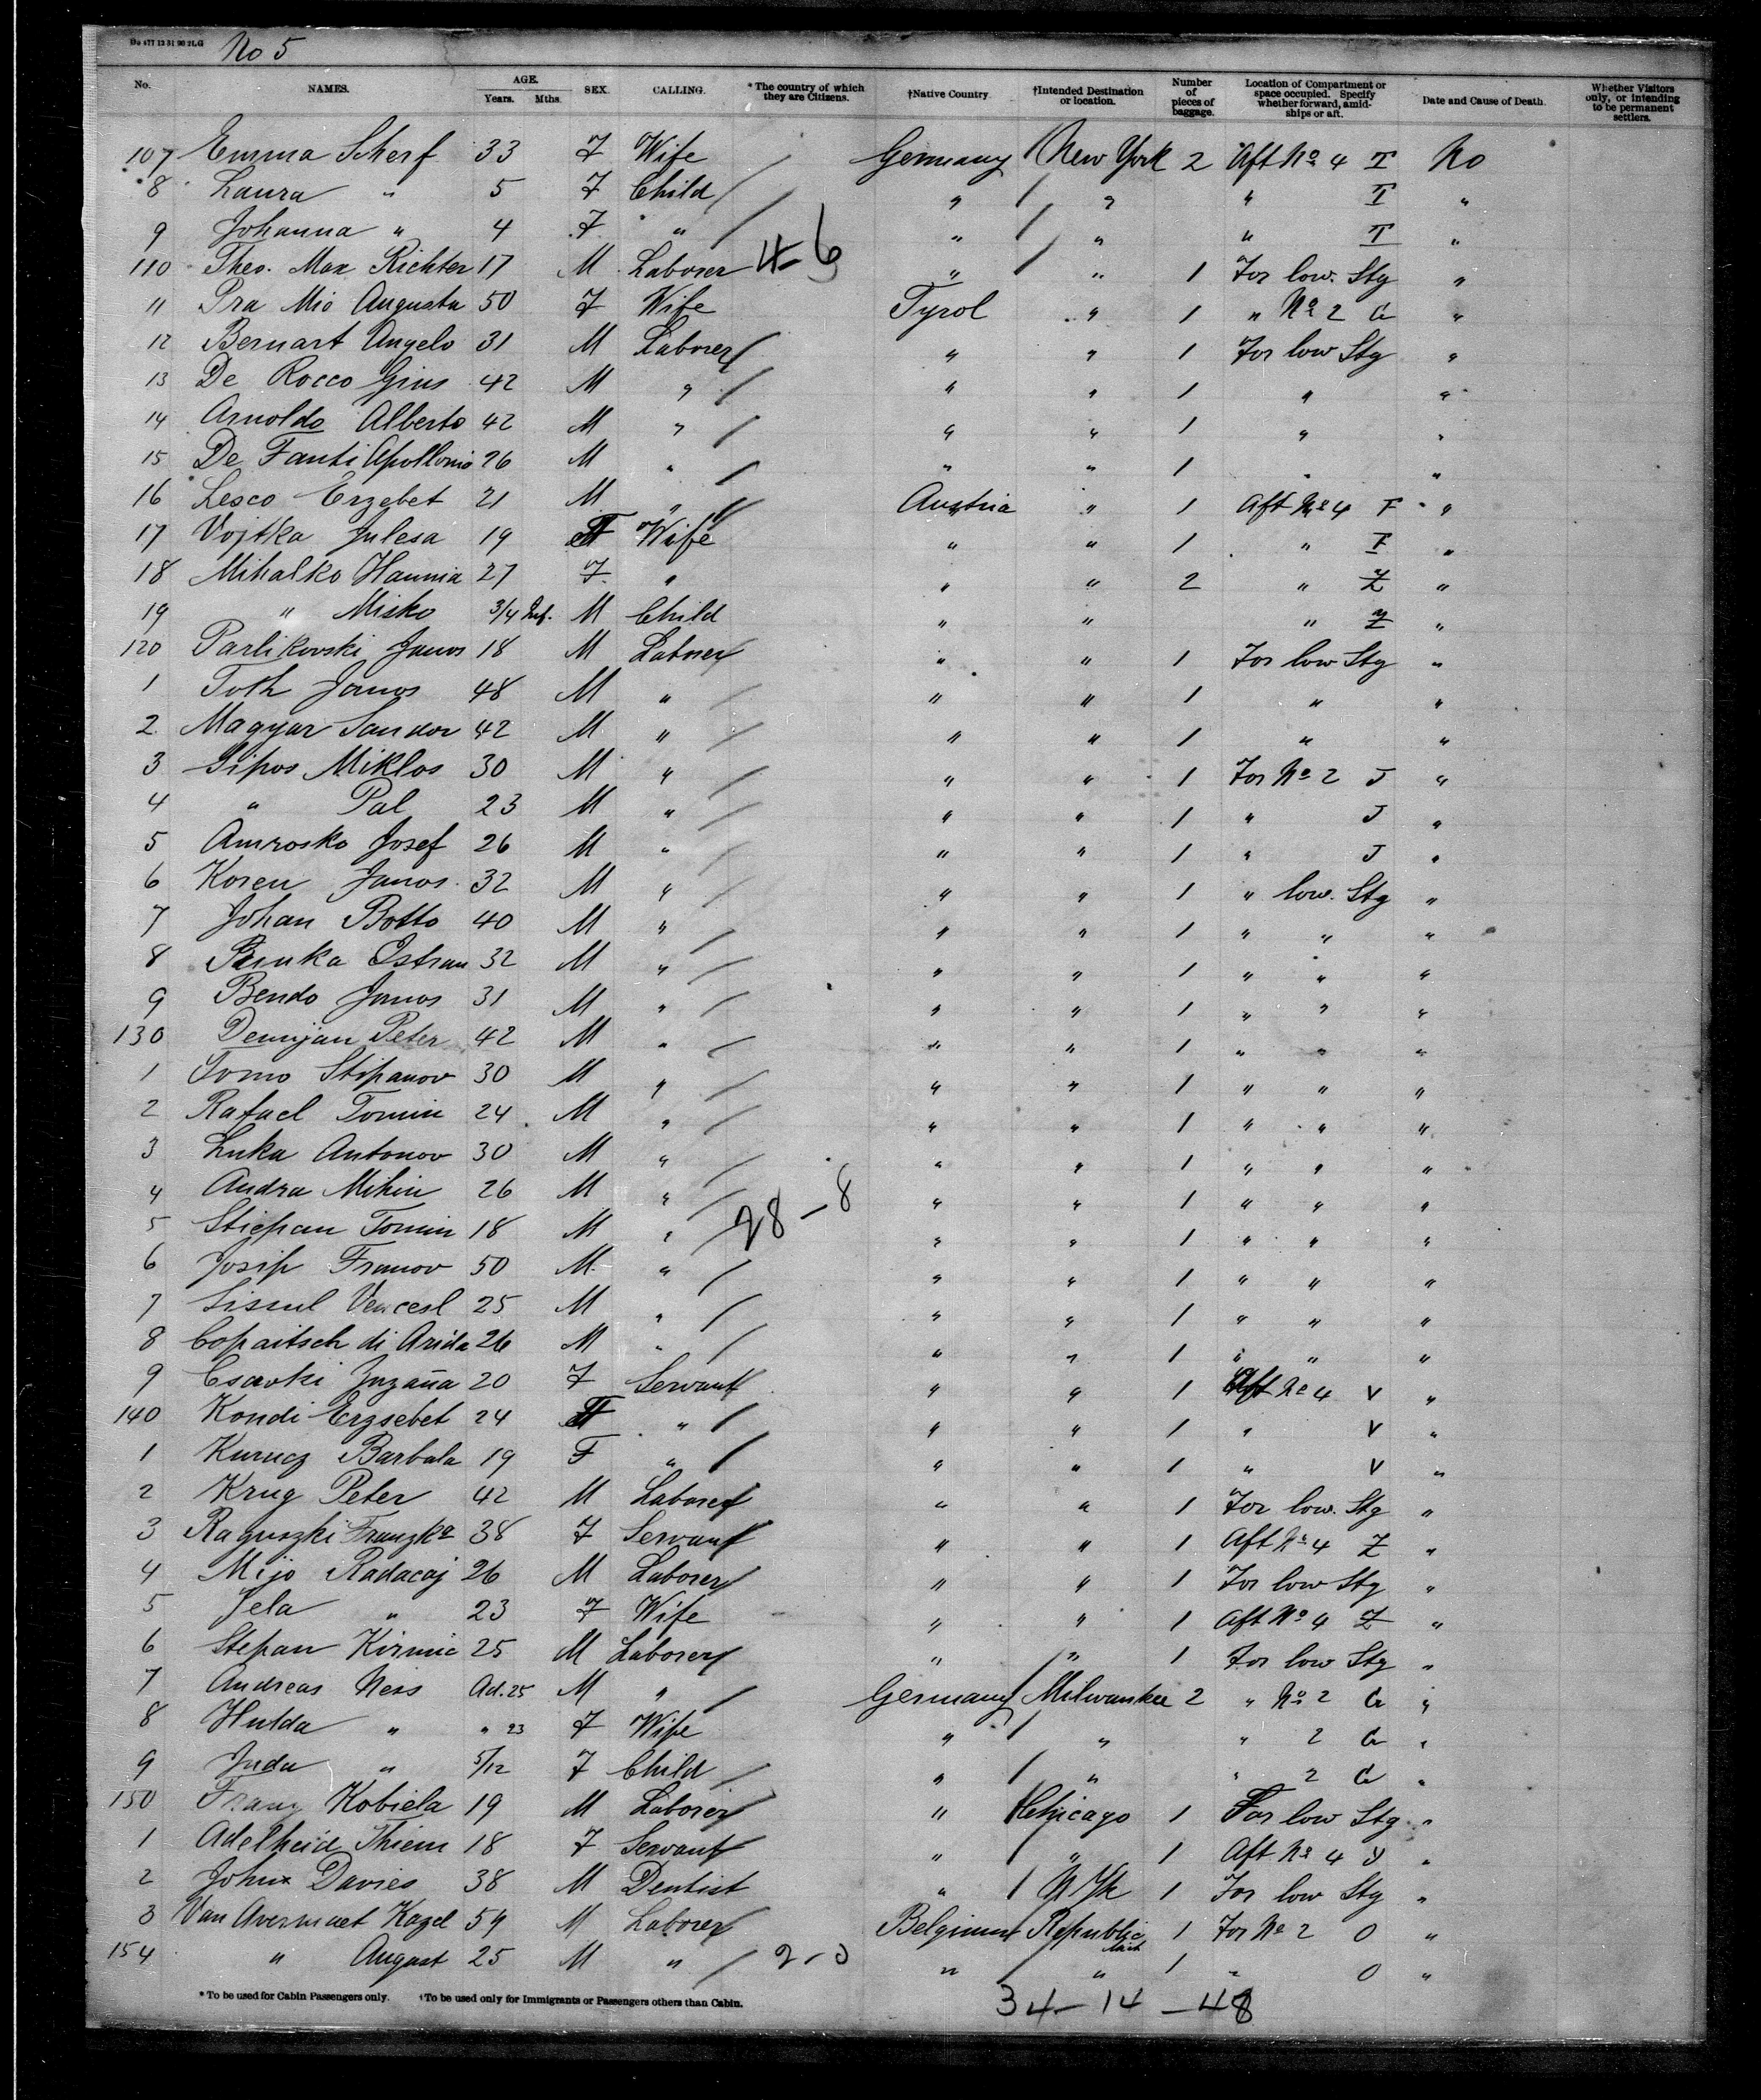 Do 477 12 31 90 2LG No 5
No. NAMES. AGE. Years. Mths. SEX. CALLING. *The country of which they are Citizens. †Native Country. †Intended Destination or location. Number of pieces of baggage. Location of Compartment or space occupied. Specify whether forward, amidships or aft. Date and Cause of Death. Whether Visitors only, or intending to be permanent settlers.
107 Emma Scherf 33 F Wife / Germany / New York 2 Aft No 4 T No
8 Laura " 5 F Child / " / " " T "
9 Johanna " 4 F " / " / " " T "
110 Theo. Max Richter 17 M Laborer 4-6 " / " 1 For low. Stg "
11 Pra Mio Augusta 50 F Wife Tyrol " 1 " No 2 G "
12 Bernart Angelo 31 M Laborer / " " 1 For low Stg "
13 De Rocco Gius 42 M " / " " 1 " "
14 Arnoldo Alberto 42 M " / " " 1 " "
15 De Fanti Apollonio 26 M " / " " 1 " "
16 Lesco Erzebet 21 M " / Austria " 1 Aft No 4 F "
17 Vojtka Julesa 19 F Wife " " 1 " F "
18 Mihalko Hannia 27 F " " " 2 " Z "
19 " Misko 3/4 Inf. M Child " " " Z "
120 Parlikovski Janos 18 M Laborer / " " 1 For low Stg "
1 Toth Janos 48 M " / " " 1 " "
2 Magyar Sandor 42 M " / " " 1 " "
3 Sipos Miklos 30 M " / " " 1 For No 2 J "
4 " Pal 23 M " / " " 1 " J "
5 Amrosko Josef 26 M " / " " 1 " J "
6 Koren Janos 32 M " / " " 1 " low. Stg "
7 Johan Botto 40 M " / " " 1 " " "
8 Ostran 32 M " / " " 1 " " "
9 Bendo Janos 31 M " / " " 1 " " "
130 Demjan Peter 42 M " / " " 1 " " "
1 Tomo Stipanov 30 M " / " " 1 " " "
2 Rafael Tomin 24 M " / " " 1 " " "
3 Luka Antonov 30 M " / " " 1 " " "
4 Andra Mihin 26 M " / " " 1 " " "
5 Stiepan Tomin 18 M " / 28-8 " " 1 " " "
6 Josip Franov 50 M " / " " 1 " " "
7 Vencesl 25 M " / " " 1 " " "
8 Copaitsch di Arida 26 M " / " " 1 " " "
9 Csavki Juzaña 20 F Servant " " 1 Aft No 4 V "
140 Kondi Erzsebet 24 F " / " " 1 " V "
1 Kurucz Barbala 19 F " / " " 1 " V "
2 Krug Peter 42 M Laborer " " 1 For low. Stg "
3 Raguszki Franzka 38 F Servant " " 1 Aft No 4 Z "
4 Mijo Radacaj 26 M Laborer " " 1 For low Stg "
5 Jela " 23 F Wife " " 1 Aft No 4 Z "
6 Stepan Kirinic 25 M Laborer " / " 1 For low Stg "
7 Andreas Ness Ad. 25 M " / Germany / Milwaukee 2 " No 2 G "
8 Hulda " " 23 F Wife " / " " 2 G "
9 Juda " 5/12 F Child / " / " " 2 G "
150 Franz Kobiela 19 M Laborer " / Chicago 1 For low Stg "
1 Adelheid Thiem 18 F Servant " / " 1 Aft No 4 Y "
2 John Davies 38 M Dentist " / N Yk 1 For low Stg "
3 Van Avermaet Kazel 59 M Laborer Belgium Republic 1 For No 2 O "
154 " August 25 M " / 2-0 " / " 1 " O "
*To be used for Cabin Passengers only. †To be used only for Immigrants or Passengers others than Cabin.
34-14-48